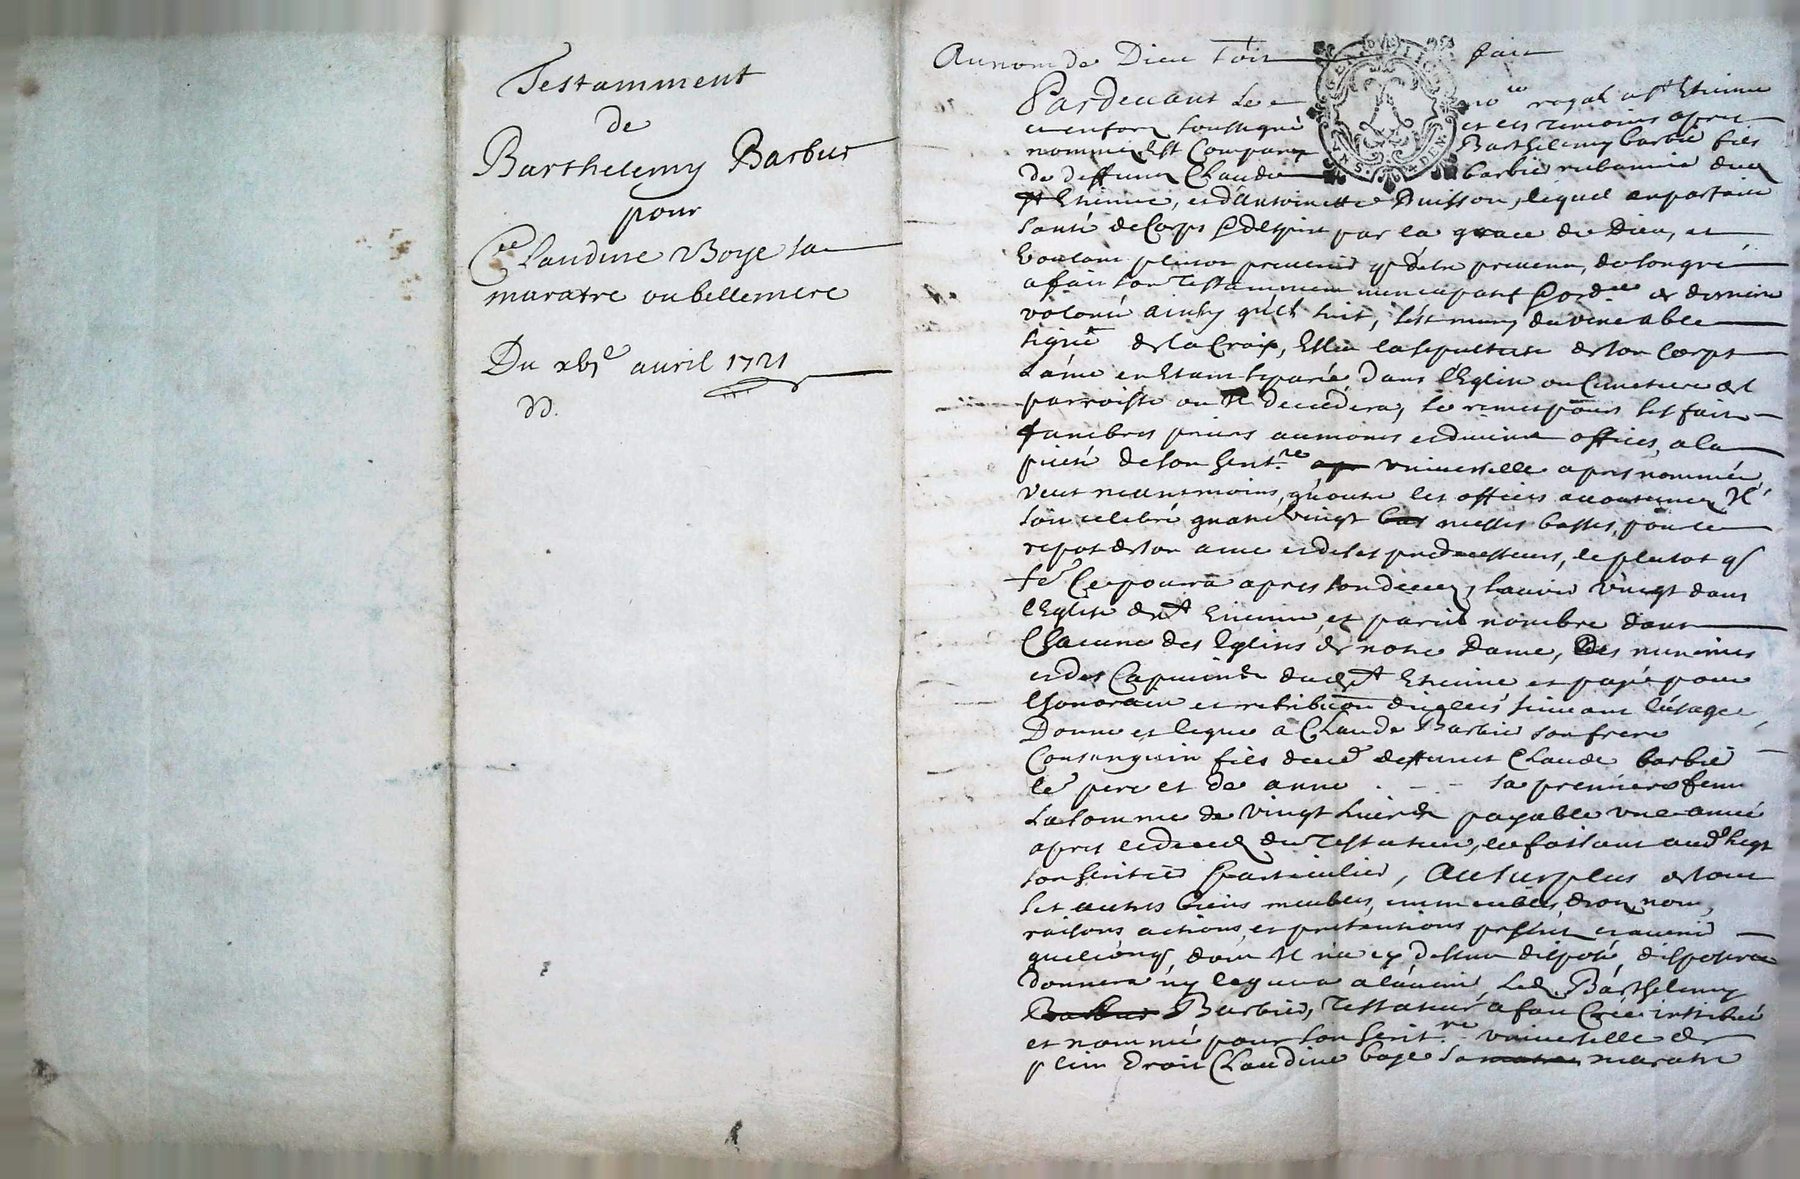 Testamment
de
Barthelemy Barbier
pour
Claudine Boye sa
maratre ou bellemere
Du avril 1721
Au nom de Dieu soit fait
Pardevant le no.re royal a st Etienne
en forez soussigné et es temoins apres
nommez Est Comparu Barthelemy barbié fils
de deffunct Claude barbié rubannié dud
st Etienne, et d'antoinette Buisson, lequel en parfaite
santé de Corps & desprit par la grace de Dieu, et
voulant plutot prevenir q d'etre prevenu, de son gré
a fait son Testamment nuncupatif & ord.re et derniere
volonté ainsy qu'il suit, s'est muny du venerable
signe de la Croix, Eslu la sepulture de son Corps
L'ame en Etant separée, dans l'Eglise ou Cimetiere de la
parroisse ou Il deccedera, se remet pour ses frais
funebres prieres aumones et divins offices, a la
pieté de son herit.re universelle apres nommée,
veut neantmoins, qu'outre les offices accoutumez Il
soit celebré quatre vingt messes basses, pour le
repos de son ame et de ses predecesseurs, le plutot q
fe Ce poura apres son decez, scavoir vingt dans
l'Eglise de st Etienne et pareil nombre dans
Chacune des Eglises de notre Dame, des minimes
et des Capucins dud st Etienne et payé pour
l'honoraire et retribution d'icelles suivant l'usage,
Donne et legue a Claude Barbié son frere
Consanguin fils dud deffunct Claude barbié
le pere et de anne . - - sa premiere femme
La somme de vingt livres payable une année
apres le decez du Testateur, le faisant aud legt
son heritié particulié, Au surplus de tous
ses autres biens meubles, immeubles, droits, noms,
raisons actions, et pretentions presents et avenir
quelconq, dont Il n'a cy dessus disposé, disposera
donnera ny leguera a l'avenir, Led. Barthelemy
Barbier, Testateur a fait Créé institué
et nommé pour son herit.re universelle de
plein droit Claudine boye sa maratre